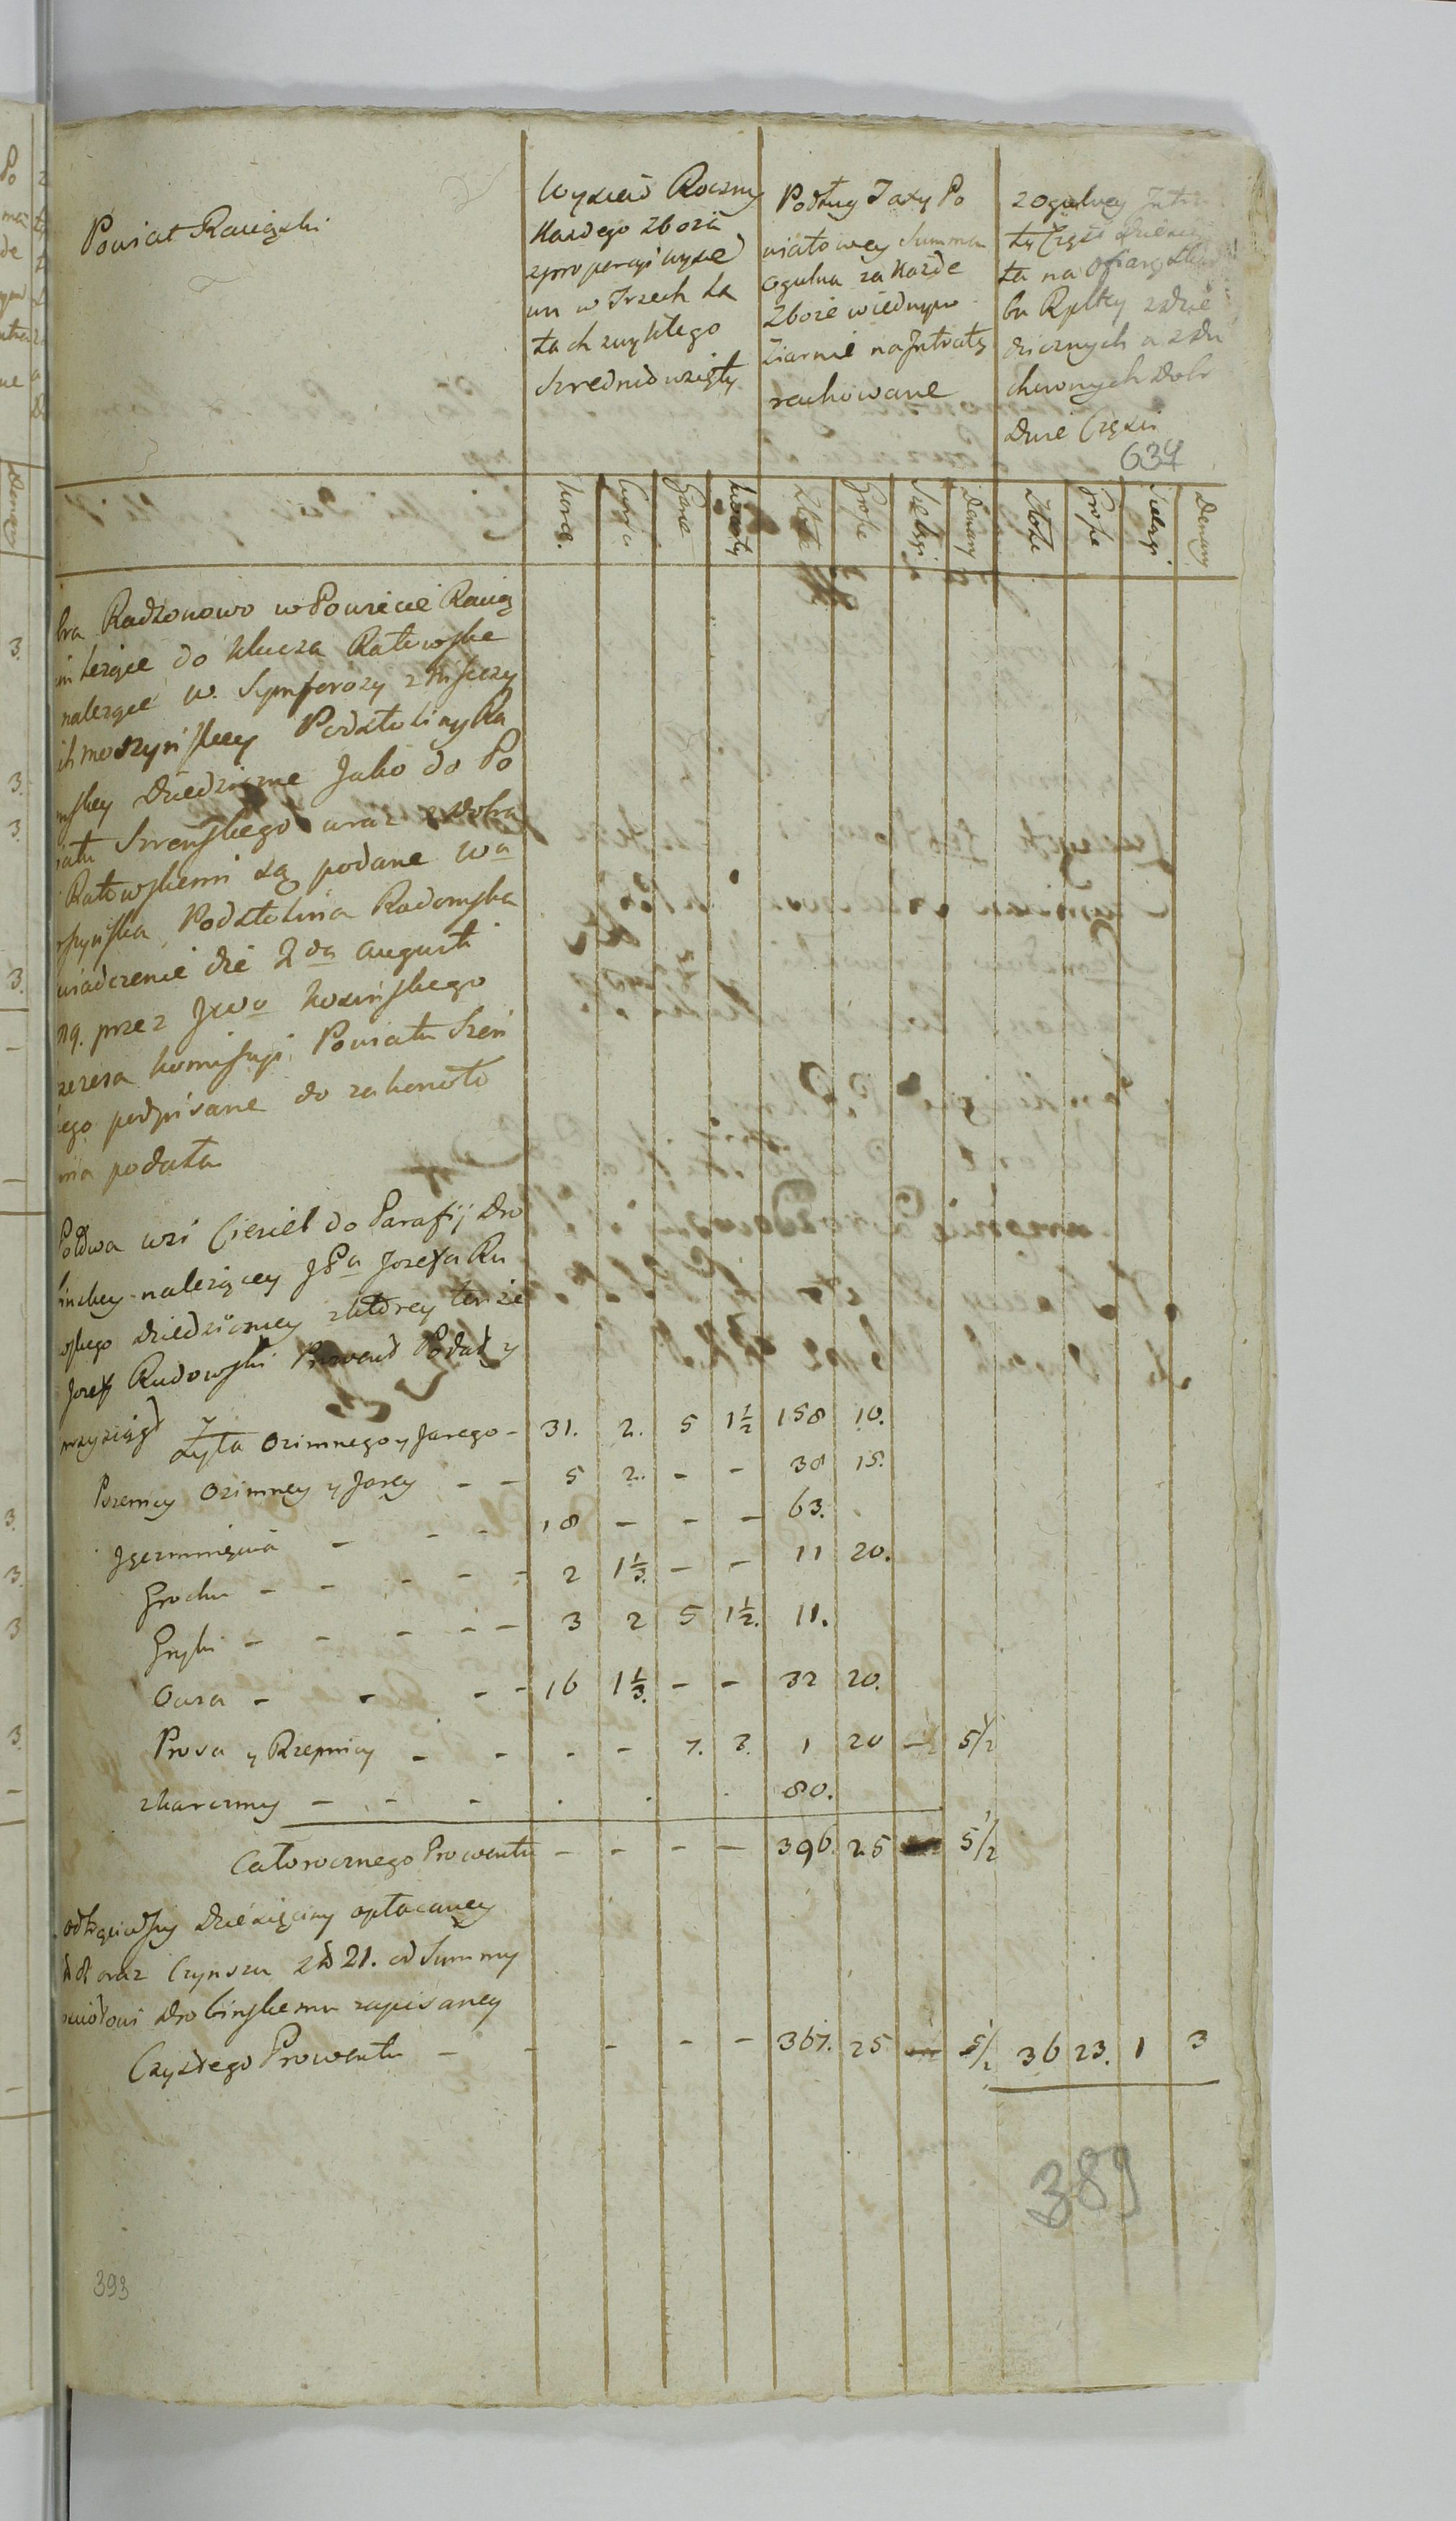 Powiat Raciąski
Wysiew Roczny
Kazdego zboza
zproporcyi wysie
wu w Trzech La
tach zwykłego
Srzednio wzięty
Podług Taxy Po
wiatowey Summa
Ogulna za Kożde
Zboze wiednym
Ziarnie na Jntratę
rachowane
zogulney Jntra
ty Część Dziesią
ta na Ofiarę Skar
bu Rpltey z dzie
dzicznych a z du
chownych Dobr
dwie Części
634
Korce.
Garce
Kwarty
Złote
Grosze
Szelągi
Denary
Złote
Grosze
Szelągi
Denary
bra Radzonowo w Powiecie Racią
im leżące do Klucza Ratowskie
należące W. Symforozy z
Podstoliny Ra
mskey Dziedziczne Jako do Po
iatu Szrenskiego wraz z Dobra
Ratowskiemi są podane Wa
szynska Podstolina Radomska
wiadczenie die 2da Augusti
89. przez JWo Kosińskego
rezesa Komissyi Powiatu Szreń
iego podpisane do zakonoto
nia podała
Połowa wsi Ciesiel do Parafij Dro
binskey należącey JPa Jozefa Ru
wskego Dziedziczney zktorey tenże
Jozef Rudowski Prowent Podał y
przysiągł
Zyta Ozimnego y Jarego - 31. 2. 5 1½ 158 10.
Pszenicy Ozimney y Jarey - - 5 2. - - 38 15.
Jęczmnięnia - - - 18 - - - 63.
Grochu - - - - - 2 1⅓. - - 11 20.
Gryki - - - - - 3 2 5 1½. 11.
Owsa - - - - 16 1⅓. - - 32 20.
Prosa y Rzepnicy - - - - 7. 3. 1 20 - 5½
zkarczmy - - - . . . 80.
Całorocznego Prowentu - - - - 396. 25 5½
odtrąciwszy Dziesięciny opłacaney
zł 8 oraz Czynszu zł 21. od Summy
ościołowi Drobinskemu zapisaney
Czystego Prowentu - - - - - 367. 25 5½ 36 23. 1 3
389
393